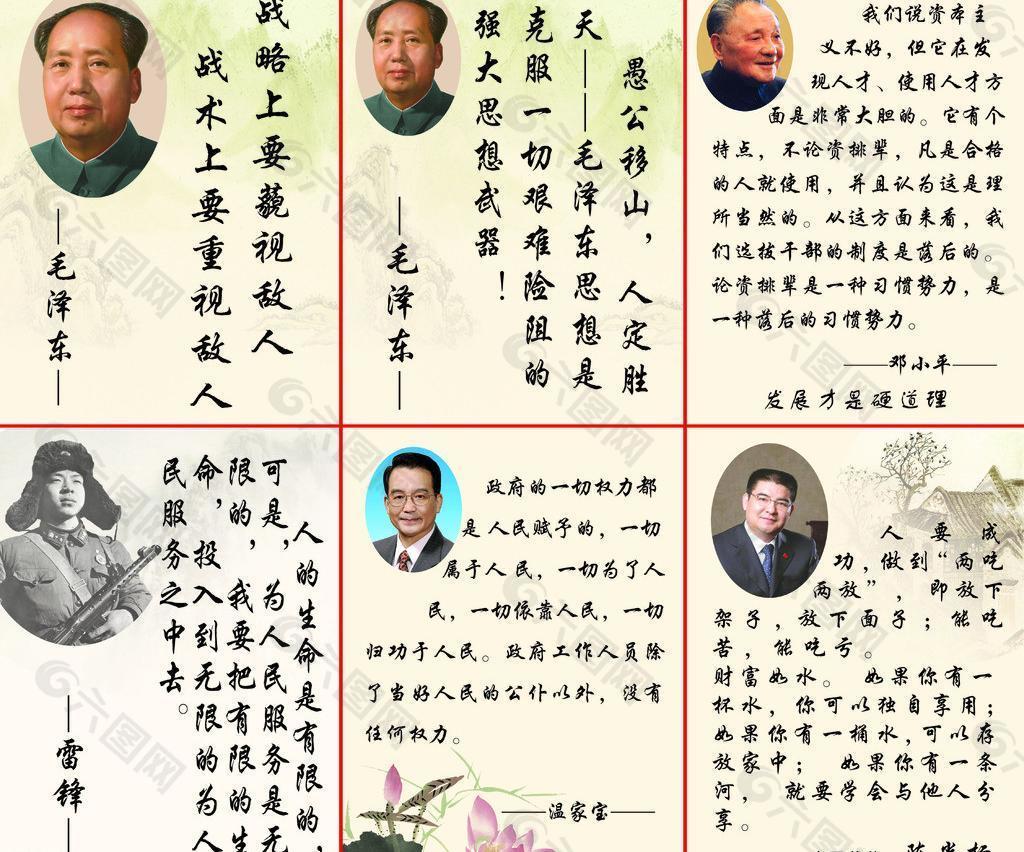 战略上要藐视敌人
战术上要重视敌人
—毛泽东—
愚公移山，人定胜
天——毛泽东思想是
克服一切艰难险阻的
强大思想武器！
—毛泽东—
我们说资本主
义不好，但它在发
现人才、使用人才方
面是非常大胆的。它有个
特点，不论资排辈，凡是合格
的人就使用，并且认为这是理
所当然的。从这方面来看，我
们选拔干部的制度是落后的。
论资排辈是一种习惯势力，是
一种落后的习惯势力。
——邓小平——
发展才是硬道理
人的生命是有限的，
可是，为人民服务是无
限的，我要把有限的生
命，投入到无限的为人
民服务之中去。
—雷锋—
政府的一切权力都
是人民赋予的，一切
属于人民，一切为了人
民，一切依靠人民，一切
归功于人民。政府工作人员除
了当好人民的公仆以外，没有
任何权力。
——温家宝——
人要成
功，做到“两吃
两放”，即放下
架子，放下面子；能吃
苦，能吃亏。
财富如水。如果你有一
杯水，你可以独自享用；
如果你有一桶水，可以存
放家中；如果你有一条
河，就要学会与他人分
享。
六图网